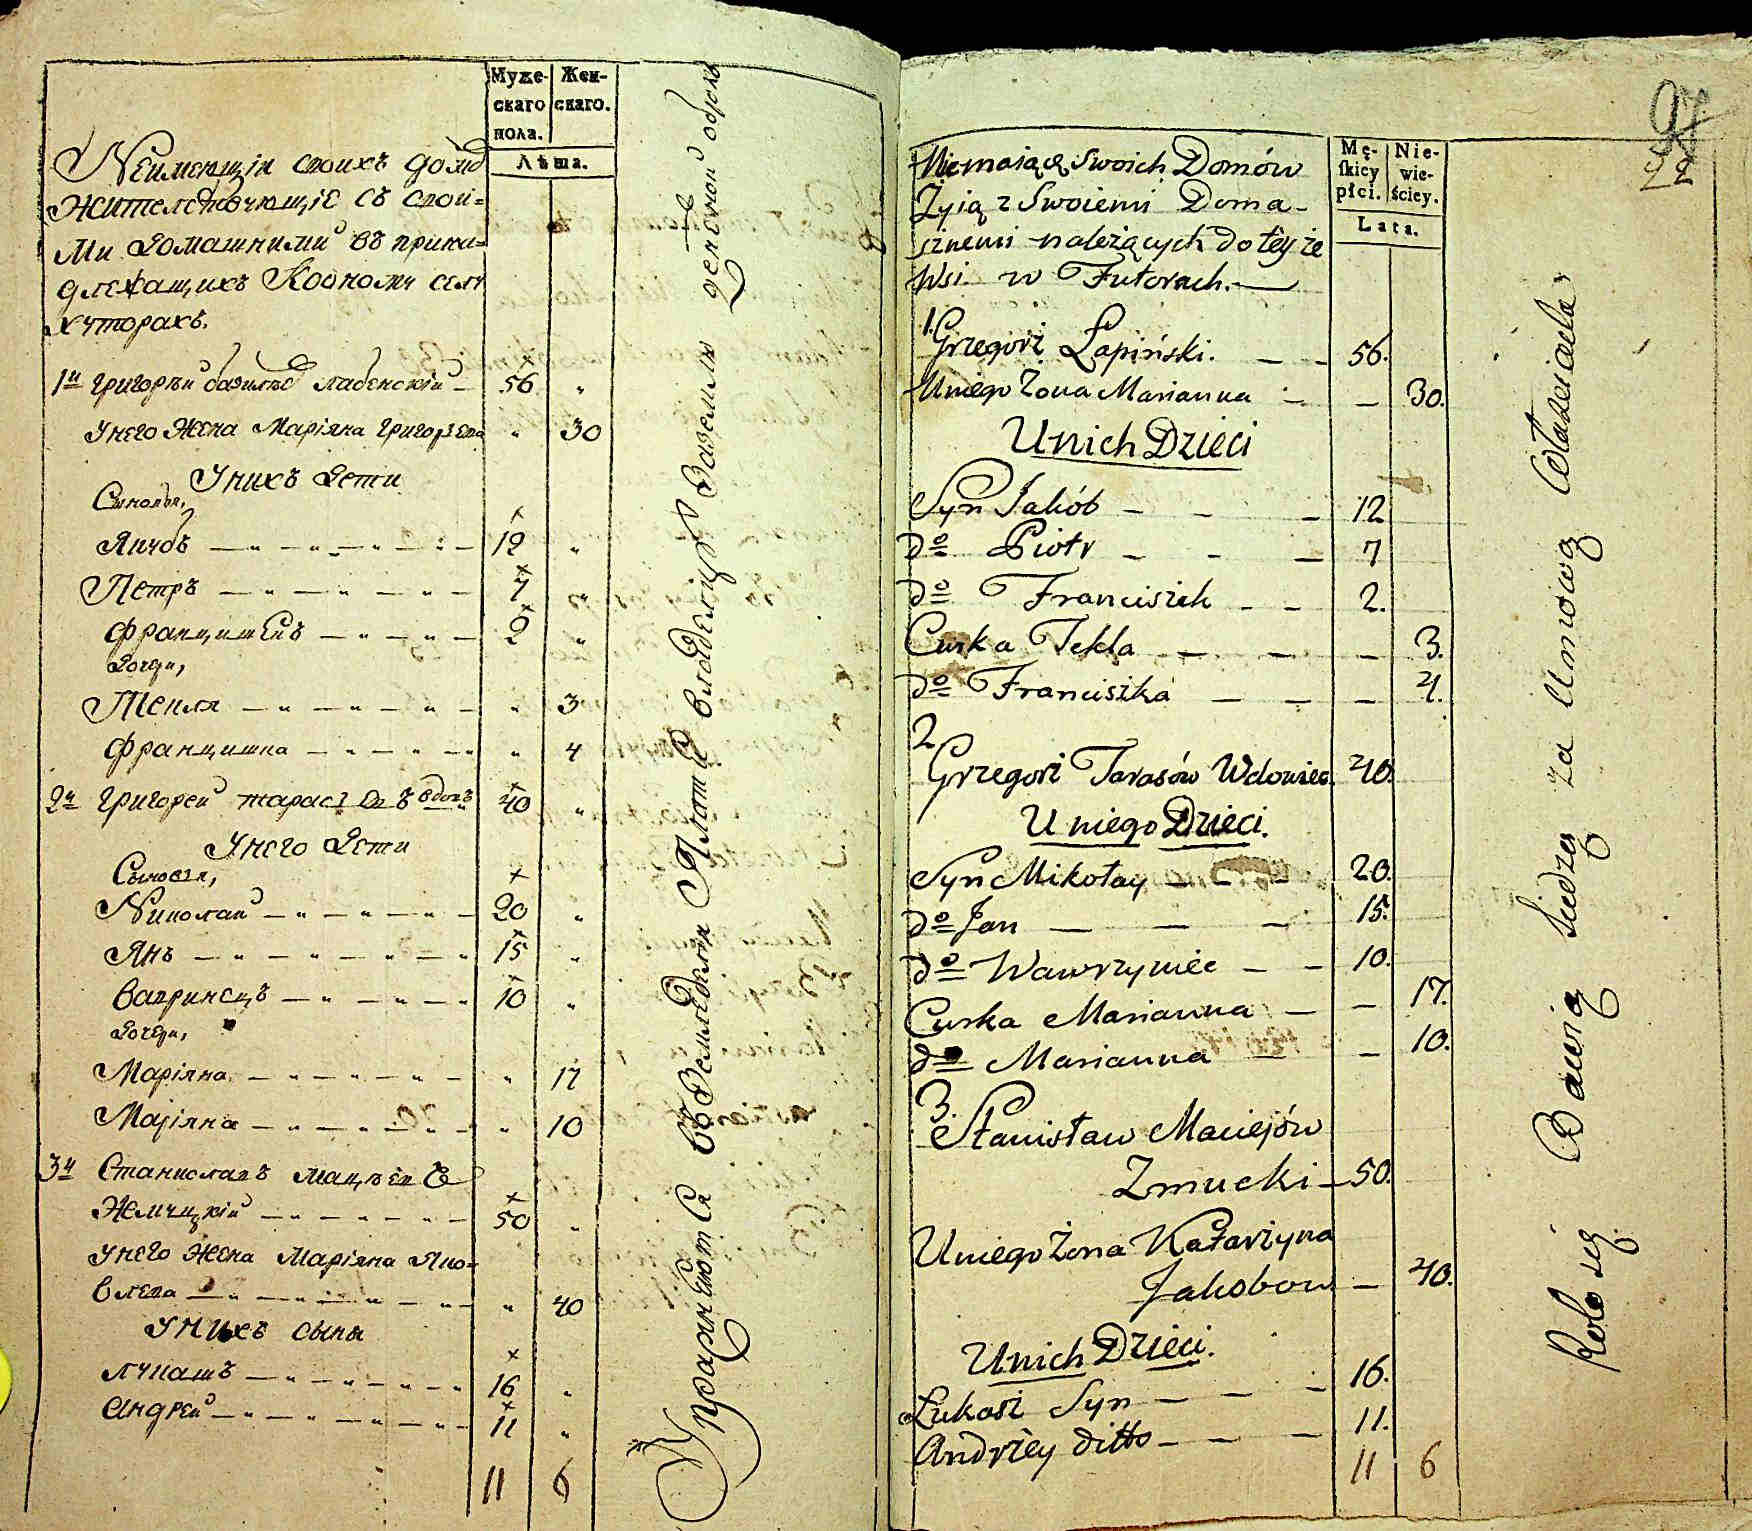 Муже-
скаго
пола.
Жен-
скаго.
Лѣта.
Неимеющіи своихъ домо
Жителствующіе съ свои=
ми Домашними въ прина=
длежащихъ Коономи селу
хуторахъ.
1й Григорьи Лабенскій — 56 "
Унего Жена Маріяна Григорьева " 30
Унихъ Дети
Сыновья,
Якубъ — " — " — " — 12 "
Петръ — " — " — " — 7 "
Францишекъ — " — " — 2 "
Дочери,
Текля — " — " — " — " 3
Францишка — " — " — " 4
2й Григорей Тарасовъ вдовъ 40 "
Унего Дети
Сыновья,
Николай — " — " — " — 20 "
Янъ — " — " — " — " — 15 "
Вавринецъ — " — " — " — 10 "
Дочери,
Маріяна — " — " — " — " 17
Маріяна — " — " — " — " 10
3й Станиславъ Мацѣевъ
Жемуцкій — " — " — " — 50 "
Унего Жена Маріяна Яко=
влева — " — " — " — " 40
Унихъ сыны
Лукашъ — " — " — " — 16 "
Андрей — " — " — " — 11 "
11 6
Упражняются въ Земледелии Платя владелцу Заземлю денежной оброкъ
97
22
Mę-
skiey
płci.
Nie-
wie-
ściey.
Lata.
Niemaiące Swoich Domów
Żyią z Swoiemi Doma-
sznemi należących do teyże
Wsi w Futorach.—
1. Grzegorż Łapiński. — — 56.
Uniego Żona Marianna — — 30.
Unich Dzieci
Syn Jakób — — — 12
do Piotr — — — 7
do Franciszek — — 2.
Curka Tekla — — — 3.
do Franciszka — — — 4.
2.
Grzegorż Tarasów Wdowiec 40.
Uniego Dzieci.
Syn Mikołay — — — 20.
do Jan — — — 15.
do Wawrzyniec — — 10.
Curka Marianna — — 17.
do Marianna — — 10.
3.
Stanisław Maciejów
Zmucki — 50.
Uniego Żona Katarżyna
Jakobow — 40.
Unich Dzieci.
Łukasż Syn — — — 16.
Andrżey ditto — — — 11.
11 6
Rolo się Bawią siedzą za Umową Właściciela